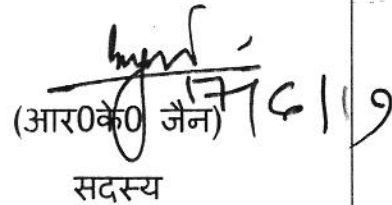 17/6/19
(आर0के0 जैन)
सदस्य